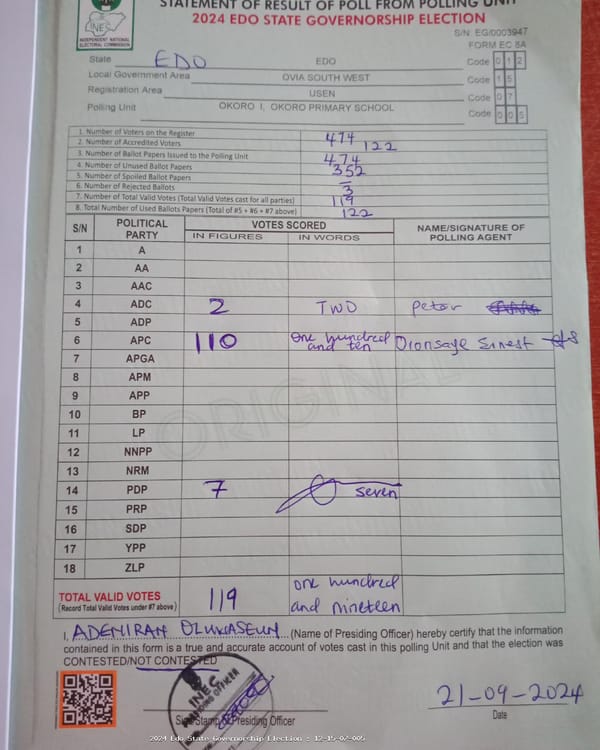 STATEMENT OF RESULT OF POLL FROM POLLING UNIT
2024 EDO STATE GOVERNORSHIP ELECTION
INEC
INDEPENDENT NATIONAL
ELECTORAL COMMISSION
S/N: EG/0003947
FORM EC 8A
State EDO EDO Code 0 1 2
Local Government Area OVIA SOUTH WEST Code 1 5
Registration Area USEN Code 0 7
Polling Unit OKORO I, OKORO PRIMARY SCHOOL Code 0 0 5
1. Number of Voters on the Register 474
2. Number of Accredited Voters 122
3. Number of Ballot Papers Issued to the Polling Unit 474
4. Number of Unused Ballot Papers 352
5. Number of Spoiled Ballot Papers –
6. Number of Rejected Ballots 3
7. Number of Total Valid Votes (Total Valid Votes cast for all parties) 119
8. Total Number of Used Ballots Papers (Total of #5 + #6 + #7 above) 122
S/N POLITICAL PARTY VOTES SCORED NAME/SIGNATURE OF POLLING AGENT
IN FIGURES IN WORDS
1 A
2 AA
3 AAC
4 ADC 2 TWO Peter
5 ADP
6 APC 110 One hundred and ten
7 APGA
8 APM
9 APP
10 BP
11 LP
12 NNPP
13 NRM
14 PDP 7 seven
15 PRP
16 SDP
17 YPP
18 ZLP
ORIGINAL
TOTAL VALID VOTES 119 one hundred and nineteen
(Record Total Valid Votes under #7 above)
I, ADENIRAN OLUWASEUN (Name of Presiding Officer) hereby certify that the information
contained in this form is a true and accurate account of votes cast in this polling Unit and that the election was
CONTESTED/NOT CONTESTED
INEC
PRESIDING OFFICER
21-09-2024
Sign/Stamp of Presiding Officer Date
2024 Edo State Governorship Election : 12-15-07-005